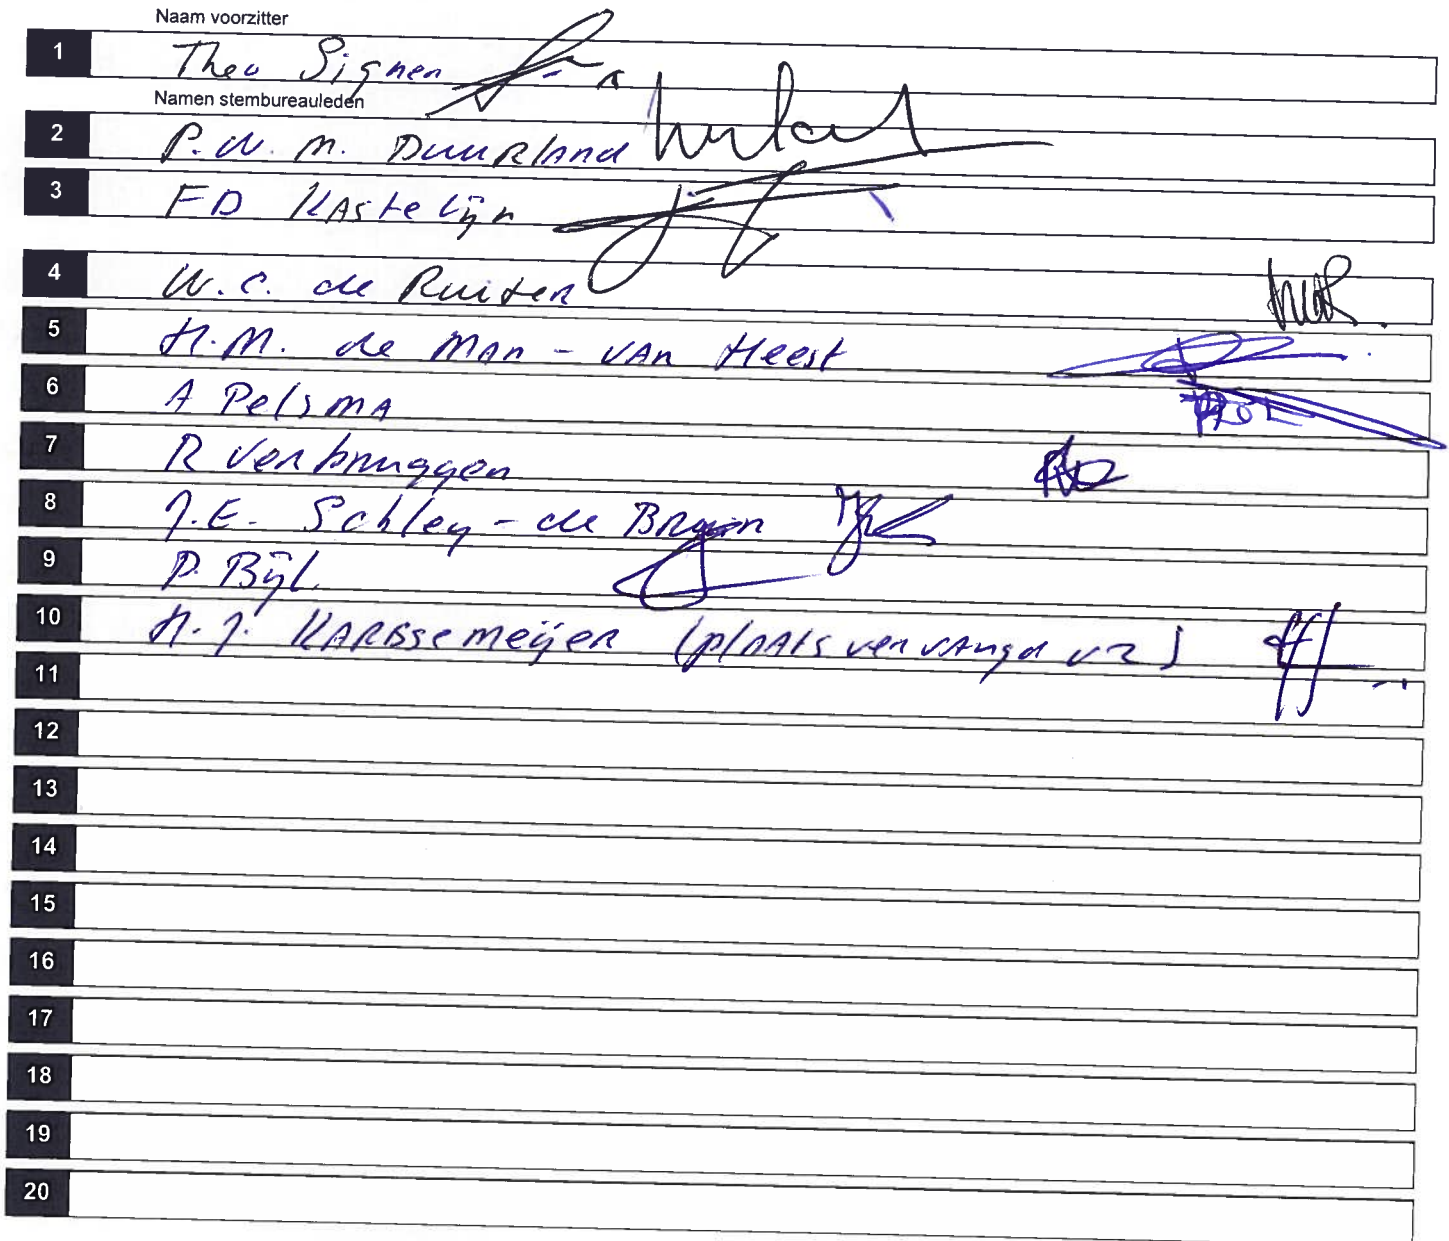 Naam voorzitter
1 Theo Signer
Namen stembureauleden
2 P.W.M. Duurland
3 FD Kastelijn
4 W.C. de Ruiter
5 H.M. de Man - van Heest
6 A Pelsma
7 R Verbruggen
8 J.E. Schley - de Bruijn
9 P. Bijl
10 H.J. Karssemeijer (plaatsvervangd vz)
11
12
13
14
15
16
17
18
19
20